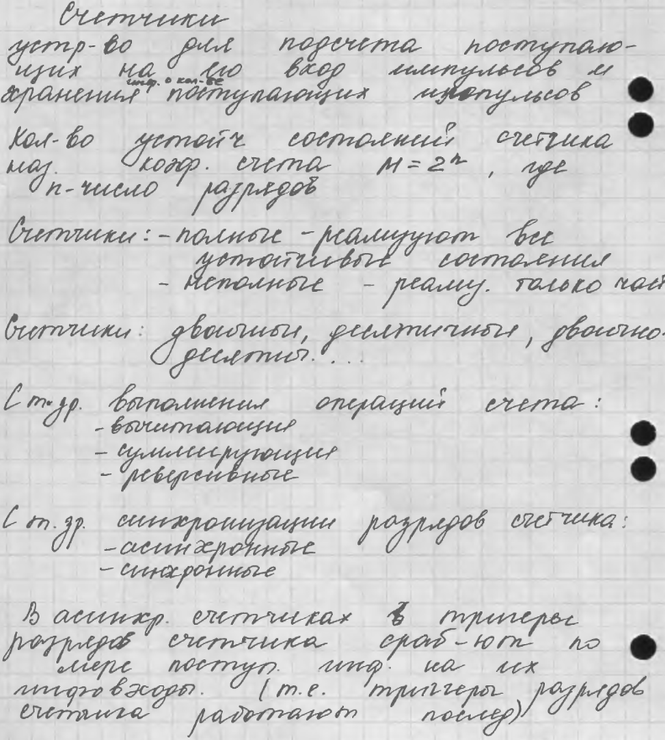 Счетчики
устр-во для подсчета поступаю-
щих на его вход импульсов и
инф. о кол-ве
хранения поступающих импульсов
Кол-во устойч состояний счетчика
наз. коэф. счета M = 2ⁿ, где
n-число разрядов
Счетчики: - полные - реализуют все
устойчивые состояния
- неполные - реализ. только част
Счетчики: двоичные, десятичные, двоично-
десятич. ...
С т.зр. выполнения операций счета:
- вычитающие
- суммирующие
- реверсивные
С т. зр. синхронизации разрядов счетчика:
- асинхронные
- синхронные
В асинхр. счетчиках триггеры
разрядов счетчика сраб-ют по
мере поступ. инф. на их
инфо входы. (т.е. триггеры разрядов
счетчика работают послед)